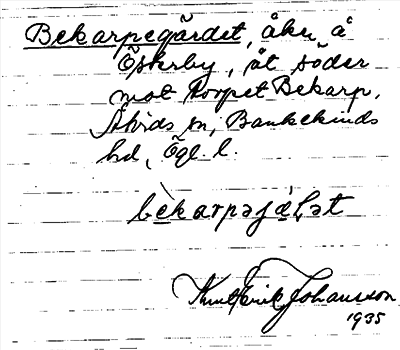 Bekarpegärdet, åker å
Österby, åt söder
mot torpet Bekarp,
Åtvids sn, Bankekinds
hd, Ögl. l.
bèkarpəjǽḷət
Knut Erik Johansson
1935